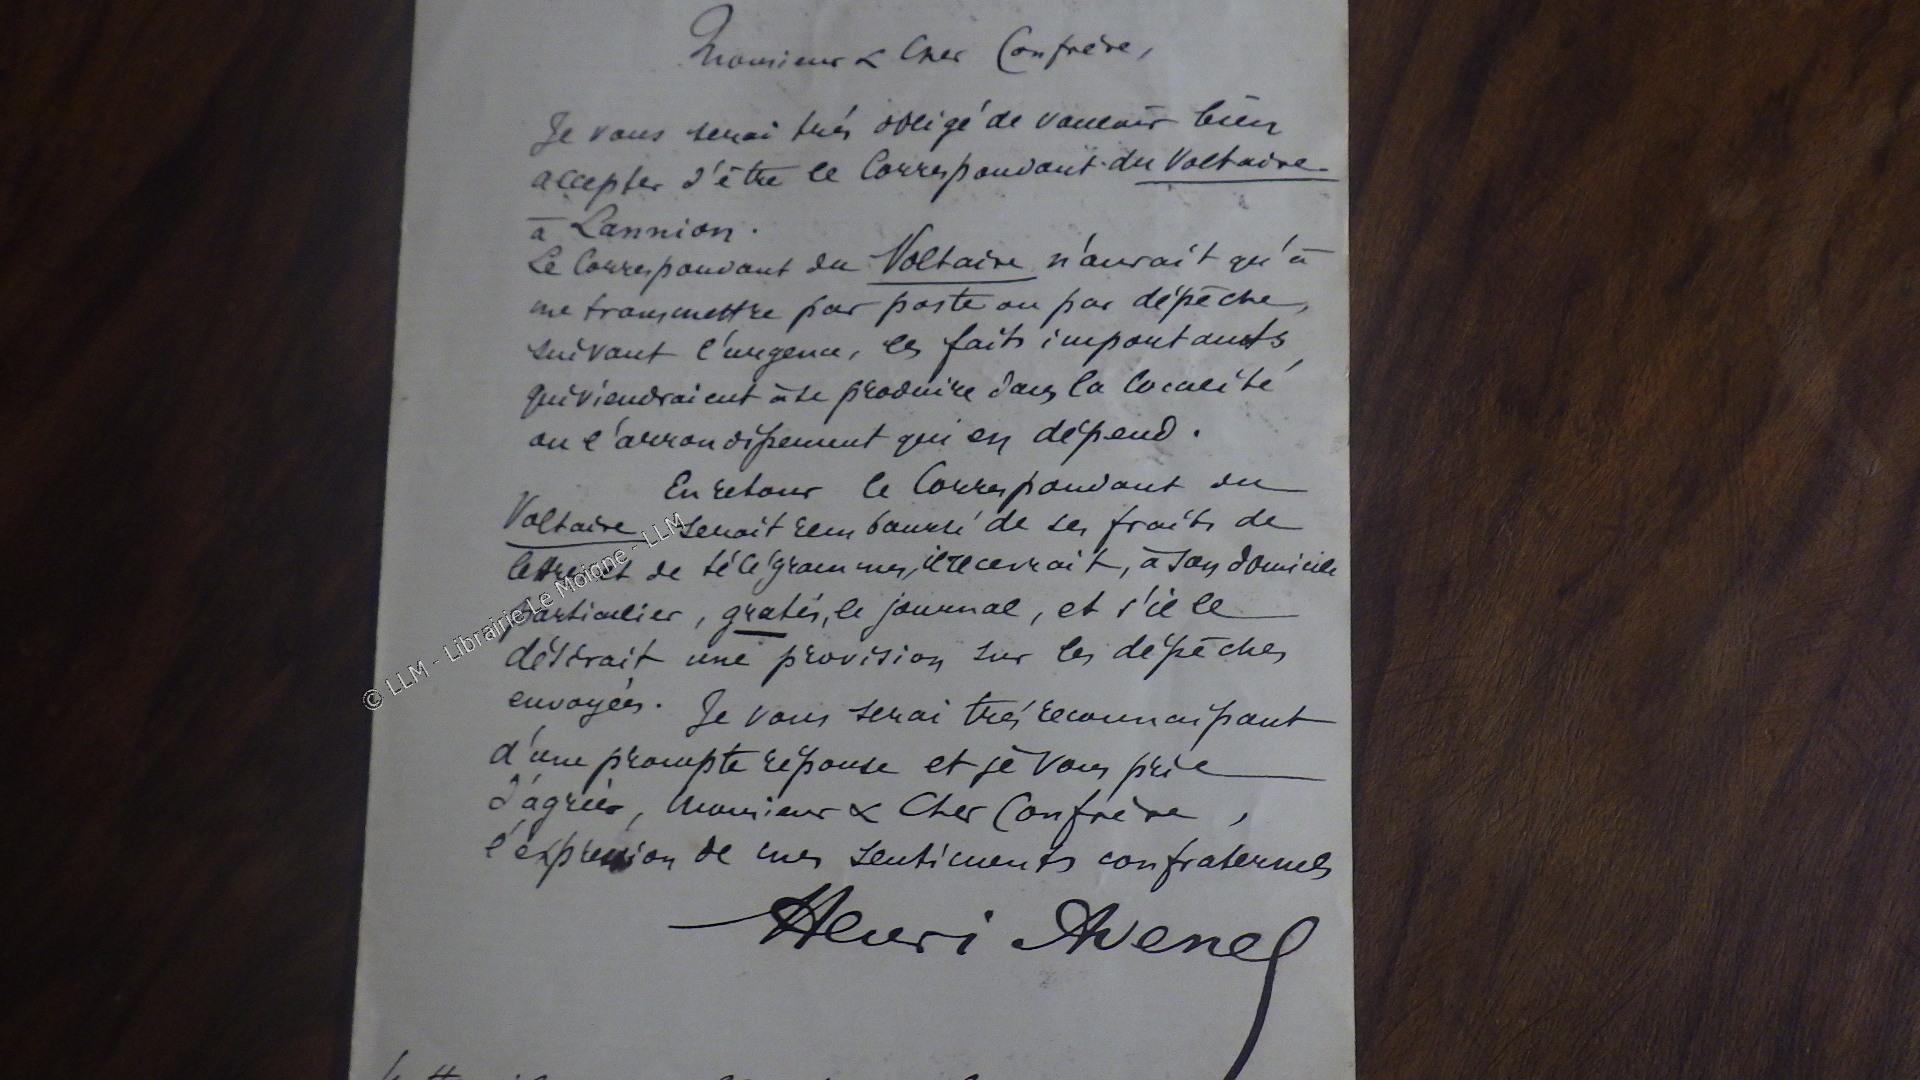 Monsieur & Cher Confrère,
Je vous serai très obligé de vouloir bien
accepter d'être le Correspondant du Voltaire
à Lannion.
Le Correspondant du Voltaire n'aurait qu'à
me transmettre par poste ou par dépêche,
suivant l'urgence, les faits importants
qui viendraient à se produire dans la localité
ou l'arrondissement qui en dépend.
En retour le Correspondant du
Voltaire serait remboursé de ses frais de
lettres et de télégrammes, il recevrait, à son domicile
particulier, gratis, le journal, et s'il le
désirait une provision sur les dépêches
envoyées. Je vous serai très reconnaissant
d'une prompte réponse et je vous prie
d'agréer, Monsieur & Cher Confrère,
l'expression de mes sentiments confraternels
Henri Avenel
© LLM - Librairie Le Moigne - LLM